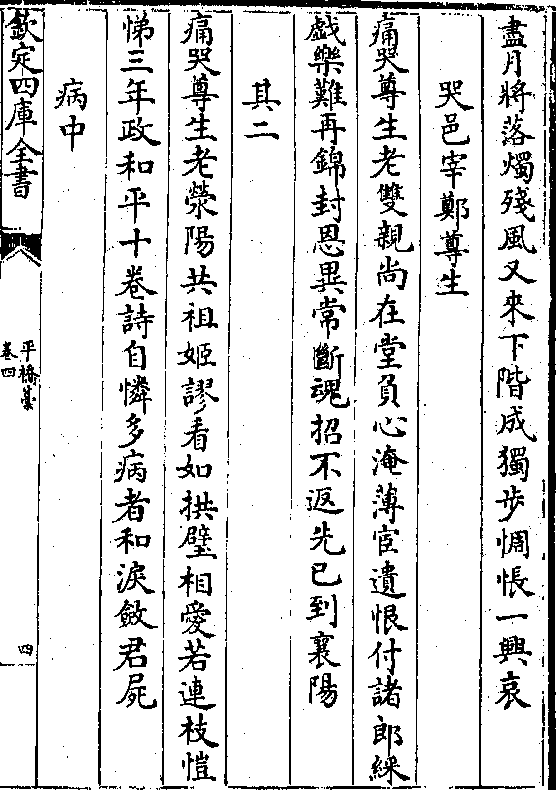 盡月將落燭殘風又來下階成獨步惆悵一興哀
哭邑宰鄭尊生
痛哭尊生老雙親尚在堂負心淹薄宦遺恨付諸郎綵
戲樂難再錦封恩異常斷魂招不返先已到襄陽
其二
痛哭尊生老滎陽共祖姬謬看如拱璧相愛若連枝愷
悌三年政和平十卷詩自憐多病者和淚斂君屍
病中
欽定四庫全書
平橋藁
卷四
四